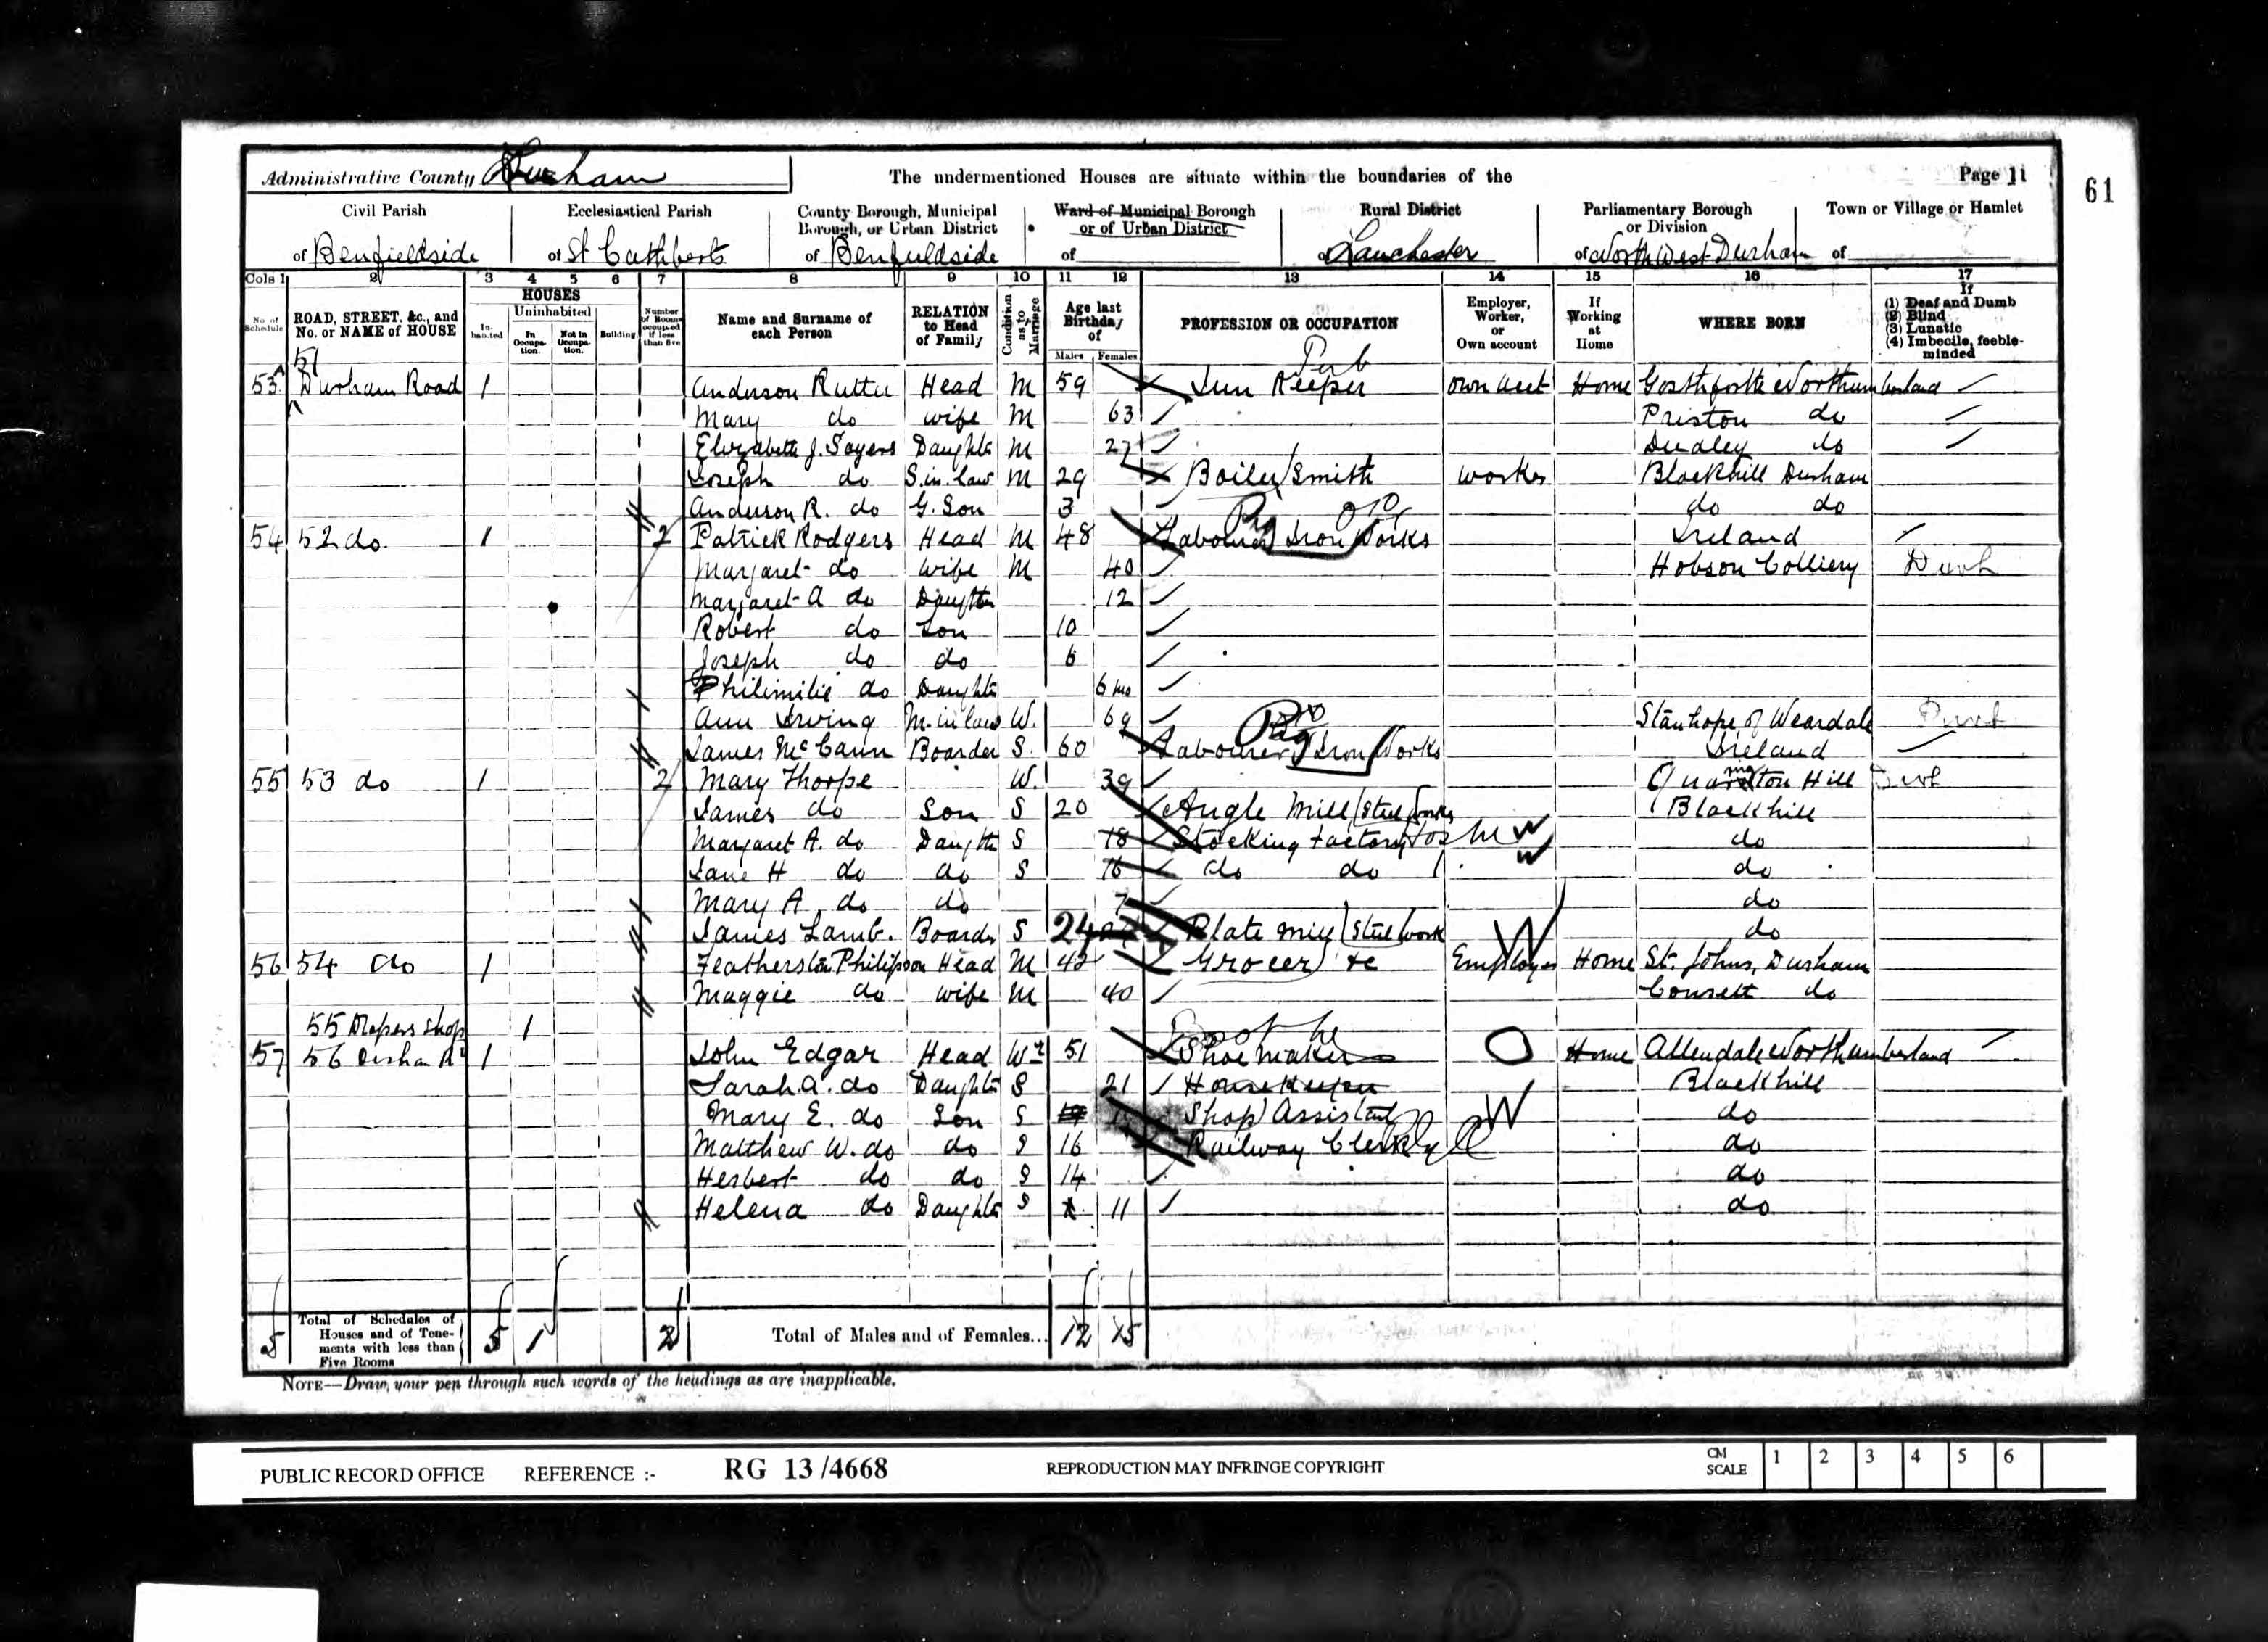 Administrative County Durham The undermentioned Houses are situate within the boundaries of the Page 11
61
Civil Parish Ecclesiastical Parish County Borough, Municipal Borough, or Urban District Ward of Municipal Borough or of Urban District Rural District Parliamentary Borough or Division Town or Village or Hamlet
of Benfieldside of St Cuthberts of Benfieldside of of Lanchester of North West Durham of
Cols 1 2 3 4 5 6 7 8 9 10 11 12 13 14 15 16 17
No. of Schedule ROAD, STREET, &c., and No. or NAME of HOUSE HOUSES In-habited Uninhabited In Occupa-tion. Not in Occupa-tion. Building Number of Rooms occupied if less than five Name and Surname of each Person RELATION to Head of Family Condition as to Marriage Age last Birthday of Males Females PROFESSION OR OCCUPATION Employer, Worker, or Own account If Working at Home WHERE BORN If (1) Deaf and Dumb (2) Blind (3) Lunatic (4) Imbecile, feeble-minded
51 Pub
53 Durham Road 1 Anderson Rutter Head M 59 Inn Keeper own acct Home Gosforth Northumberland
Mary do wife M 63 Priston do
Elizabeth J. Sayers Daughter M 27 Dudley do
Joseph do S. in. law M 29 Boiler Smith worker Blackhill Durham
Anderson R. do G. Son 3 do do
54 52 do. 1 2 Patrick Rodgers Head M 48 Labourer Iron Works Ireland
Margaret do wife M 40 Hobson Colliery Durh
Margaret A do Daughter 12
Robert do Son 10
Joseph do do 6
Philimilie do Daughter 6 mo
Ann Irving M. in law W. 69 Stanhope Weardale Durh
James McCann Boarder S. 60 Labourer Iron Works Ireland
55 53 do 1 2 Mary Thorpe W. 39 Quarrington Hill Durh
James do Son S 20 Angle Mill (Steel Works Blackhill
Margaret A. do Daughter S 18 Stocking Factory do
Jane H do do S 16 do do do
Mary A do do 7 do
James Lamb. Boarder S 24 Plate mill (Steel work do
56 54 do 1 Featherston Philipson Head M 42 Grocer &c Employer Home St. Johns, Durham
Maggie do wife M 40 Consett do
55 Drapers Shop 1
Boot
57 56 Durham Rd 1 John Edgar Head Wr 51 Shoe maker Home Allendale Northumberland
Sarah A. do Daughter S 21 Housekeeper Blackhill
Mary E. do Son S Shop Assistant W do
Matthew W. do do S 16 Railway Clerk do
Herbert do do S 14 do
Helena do Daughter S 11 do
5 Total of Schedules of Houses and of Tene-ments with less than Five Rooms 5 1 2 Total of Males and of Females... 12 15
NOTE—Draw your pen through such words of the headings as are inapplicable.
PUBLIC RECORD OFFICE REFERENCE :- RG 13/4668 REPRODUCTION MAY INFRINGE COPYRIGHT CM SCALE 1 2 3 4 5 6